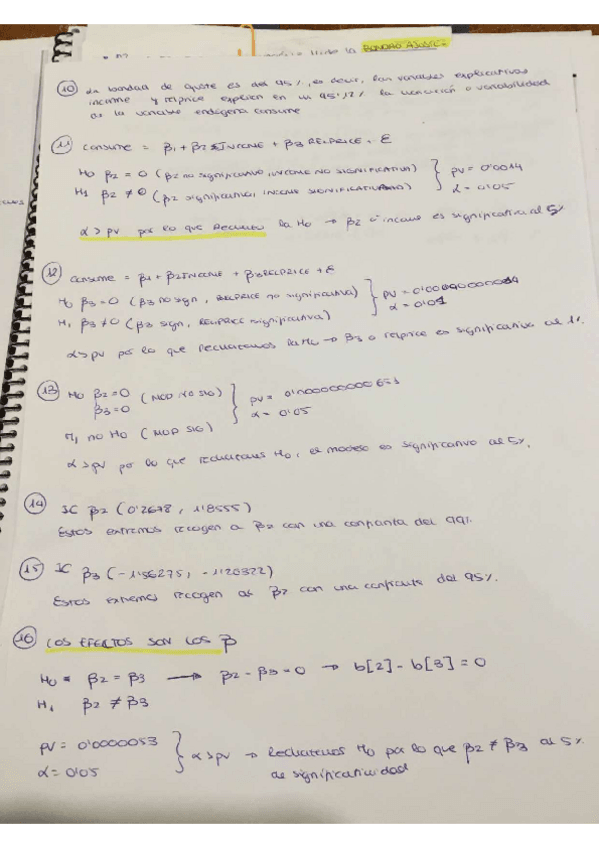 la BONDAD AJUSTE
10 La bondad de ajuste es del 95%, es decir, las variables explicativas
income y relprice explican en un 95'12% la variación o variabilidad
de la variable endógena consume
11 consume = β1 + β2 INCOME + β3 RELPRICE + ε
H0 β2 = 0 (β2 no significativo, INCOME NO SIGNIFICATIVA) PV = 0'0014
H1 β2 ≠ 0 (β2 significativo, INCOME SIGNIFICATIVA) α = 0'05
α > pv por lo que Rechazo la H0 → β2 o income es significativa al 5%
12 consume = β1 + β2 INCOME + β3 RELPRICE + ε
H0 β3 = 0 (β3 no sign, RELPRICE no significativa) PV =
H1 β3 ≠ 0 (β3 sign, RELPRICE significativa) α = 0'01
α > pv por lo que rechazamos la H0 → β3 o relprice es significativa al 1%.
13 H0 β2 = 0 (MOD NO SIG) PV =
β3 = 0 α = 0'05
H1 no H0 (MOD SIG)
α > pv por lo que rechazamos H0, el modelo es significativo al 5%.
14 IC β2 (0'2678, 1'8555)
Estos extremos recogen a β2 con una confianza del 99%.
15 IC β3 (-1'56275, -1'20322)
Estos extremos recogen a con una confianza del 95%.
16 LOS EFECTOS SON LOS β
H0 = β2 = β3 → β2 - β3 = 0 → b[2] - b[3] = 0
H1 β2 ≠ β3
PV = 0'0000053 α > pv → Rechazamos H0 por lo que β2 ≠ β3 al 5%
α = 0'05 de significatividad